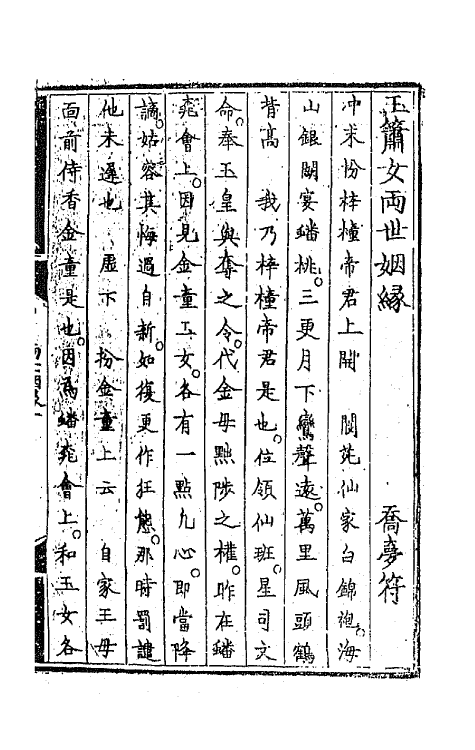 玉簫女両世姻縁　喬夢符
冲末扮梓橦帝君上開　閬苑仙家白錦袍。海
山銀闕宴蟠桃。三更月下鸞聲遠。萬里風頭鶴
背高　我乃梓橦帝君是也。位領仙班。星司文
命。奉玉皇與奪之令。代金母㸃陟之權。昨在蟠
桃會上。因見金童玉女。各有一㸃凡心。即當降
謫。姑容其悔過自新。如復更作狂態。那時罰譴
他未遲也　虚下　扮金童上云　自家王母
靣前侍香金童是也。因為蟠桃會上。和玉女各